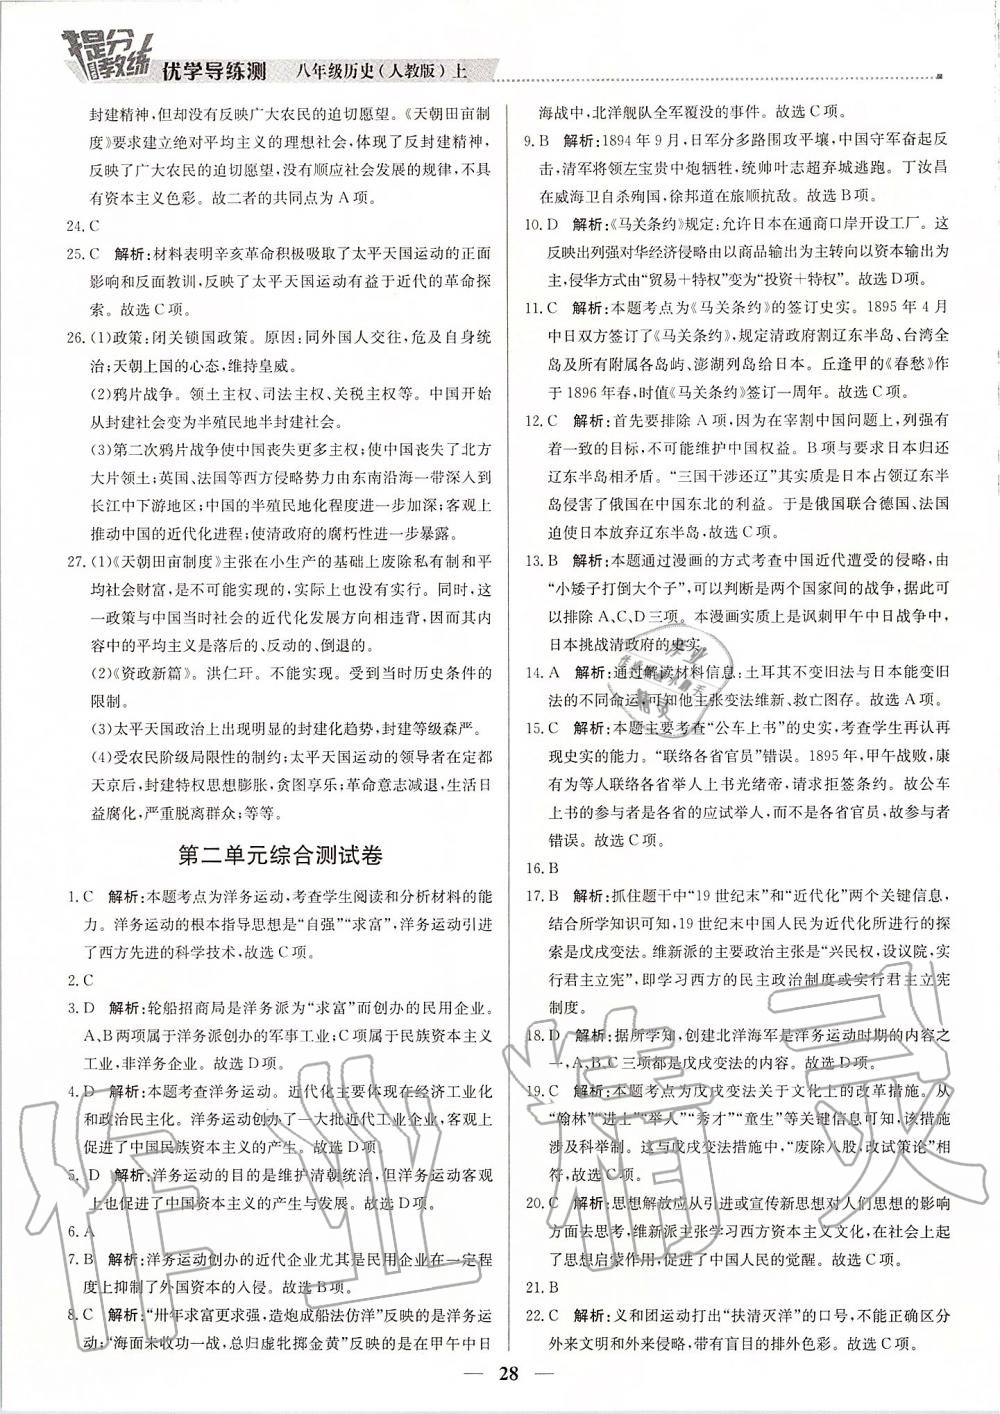 提分教练
优学导练测 八年级历史(人教版)上
封建精神,但却没有反映广大农民的迫切愿望。《天朝田亩制
度》要求建立绝对平均主义的理想社会,体现了反封建精神,
反映了广大农民的迫切愿望,没有顺应社会发展的规律,不具
有资本主义色彩。故二者的共同点为A项。
24. C
25. C 解析:材料表明辛亥革命积极吸取了太平天国运动的正面
影响和反面教训,反映了太平天国运动有益于近代的革命探
索。故选C项。
26. (1)政策:闭关锁国政策。原因:同外国人交往,危及自身统
治;天朝上国的心态,维持皇威。
(2)鸦片战争。领土主权、司法主权、关税主权等。中国开始
从封建社会变为半殖民地半封建社会。
(3)第二次鸦片战争使中国丧失更多主权;使中国丧失了北方
大片领土;英国、法国等西方侵略势力由东南沿海一带深入到
长江中下游地区;中国的半殖民地化程度进一步加深;客观上
推动中国的近代化进程;使清政府的腐朽性进一步暴露。
27. (1)《天朝田亩制度》主张在小生产的基础上废除私有制和平
均社会财富,是不可能实现的,实际也没有实行。同时,这
一政策与中国当时社会的近代化发展方向相违背,因而其内
容中的平均主义是落后的、反动的、倒退的。
(2)《资政新篇》。洪仁玕。不能实现。受到当时历史条件的
限制。
(3)太平天国政治上出现明显的封建化趋势,封建等级森严。
(4)受农民阶级局限性的制约;太平天国运动的领导者在定都
天京后,封建特权思想膨胀,贪图享乐;革命意志减退,生活日
益腐化,严重脱离群众;等等。
第二单元综合测试卷
1. C 解析:本题考点为洋务运动,考查学生阅读和分析材料的能
力。洋务运动的根本指导思想是“自强”“求富”,洋务运动引进
了西方先进的科学技术,故选C项。
2. C
3. D 解析:轮船招商局是洋务派为“求富”而创办的民用企业。
A、B两项属于洋务派创办的军事工业;C项属于民族资本主义
工业,非洋务企业。故选D项。
4. D 解析:本题考查洋务运动。近代化主要体现在经济工业化
和政治民主化。洋务运动创办了一大批近代工业企业,客观上
促进了中国民族资本主义的产生。故选D项。
5. D 解析:洋务运动的目的是维护清朝统治,但洋务运动客观
上促进了中国资本主义的产生与发展。故选D项。
6. A
7. B 解析:洋务运动创办的近代企业尤其是民用企业在一定程
度上抑制了外国资本的入侵。故选B项。
8. C 解析:“卅年求富更求强,造炮成船法仿洋”反映的是洋务运
动;“海面未收功一战,总归虚牝掷金黄”反映的是在甲午中日
海战中,北洋舰队全军覆没的事件。故选C项。
9. B 解析:1894年9月,日军分多路围攻平壤,中国守军奋起反
击,清军将领左宝贵中炮牺牲,统帅叶志超弃城逃跑。丁汝昌
在威海卫自杀殉国,徐邦道在旅顺抗敌。故选B项。
10. D 解析:《马关条约》规定:允许日本在通商口岸开设工厂。这
反映出列强对华经济侵略由以商品输出为主转向以资本输出为
主,侵华方式由“贸易+特权”变为“投资+特权”。故选D项。
11. C 解析:本题考点为《马关条约》的签订史实。1895年4月
中日双方签订了《马关条约》,规定清政府割辽东半岛、台湾全
岛及所有附属各岛屿、澎湖列岛给日本。丘逢甲的《春愁》作
于1896年春,时值《马关条约》签订一周年。故选C项。
12. C 解析:首先要排除A项,因为在宰割中国问题上,列强有
着一致的目标,不可能维护中国权益。B项与要求日本归还
辽东半岛相矛盾。“三国干涉还辽”其实质是日本占领辽东半
岛损害了俄国在中国东北的利益。于是俄国联合德国、法国
迫使日本放弃辽东半岛,故选C项。
13. B 解析:本题通过漫画的方式考查中国近代遭受的侵略,由
“小矮子打倒大个子”,可以判断是两个国家间的战争,据此可
以排除A、C、D三项。本漫画实质上是讽刺甲午中日战争中,
日本挑战清政府的史实。
14. A 解析:通过解读材料信息:土耳其不变旧法与日本能变旧
法的不同命运,可知他主张变法维新、救亡图存。故选A项。
15. C 解析:本题主要考查“公车上书”的史实,考查学生再认再
现史实的能力。“联络各省官员”错误。1895年,甲午战败,康
有为等人联络各省举人上书光绪帝,请求拒签条约。故公车
上书的参与者是各省的应试举人,而不是各省官员,故参与者
错误。故选C项。
16. B
17. B 解析:抓住题干中“19世纪末”和“近代化”两个关键信息,
结合所学知识可知,19世纪末中国人民为近代化所进行的探
索是戊戌变法。维新派的主要政治主张是“兴民权,设议院,实
行君主立宪”,即学习西方的民主政治制度或实行君主立宪
制度。
18. D 解析:据所学知,创建北洋海军是洋务运动时期的内容之
一,A、B、C三项都是戊戌变法的内容。故选D项。
19. C 解析:本题考点为戊戌变法关于文化上的改革措施。从
“翰林”“进士”“举人”“秀才”“童生”等关键信息可知,该措施
涉及科举制。这与戊戌变法措施中,“废除八股,改试策论”相
符,故选C项。
20. C 解析:思想解放应从引进或宣传新思想对人们思想的影响
方面去思考,维新派主张学习西方资本主义文化,在客观上起
了思想启蒙作用,促进了中国人民的觉醒。故选C项。
21. B
22. C 解析:义和团运动打出“扶清灭洋”的口号,不能正确区分
外来文明和外来侵略,带有盲目的排外色彩。故选C项。
28
作业精灵